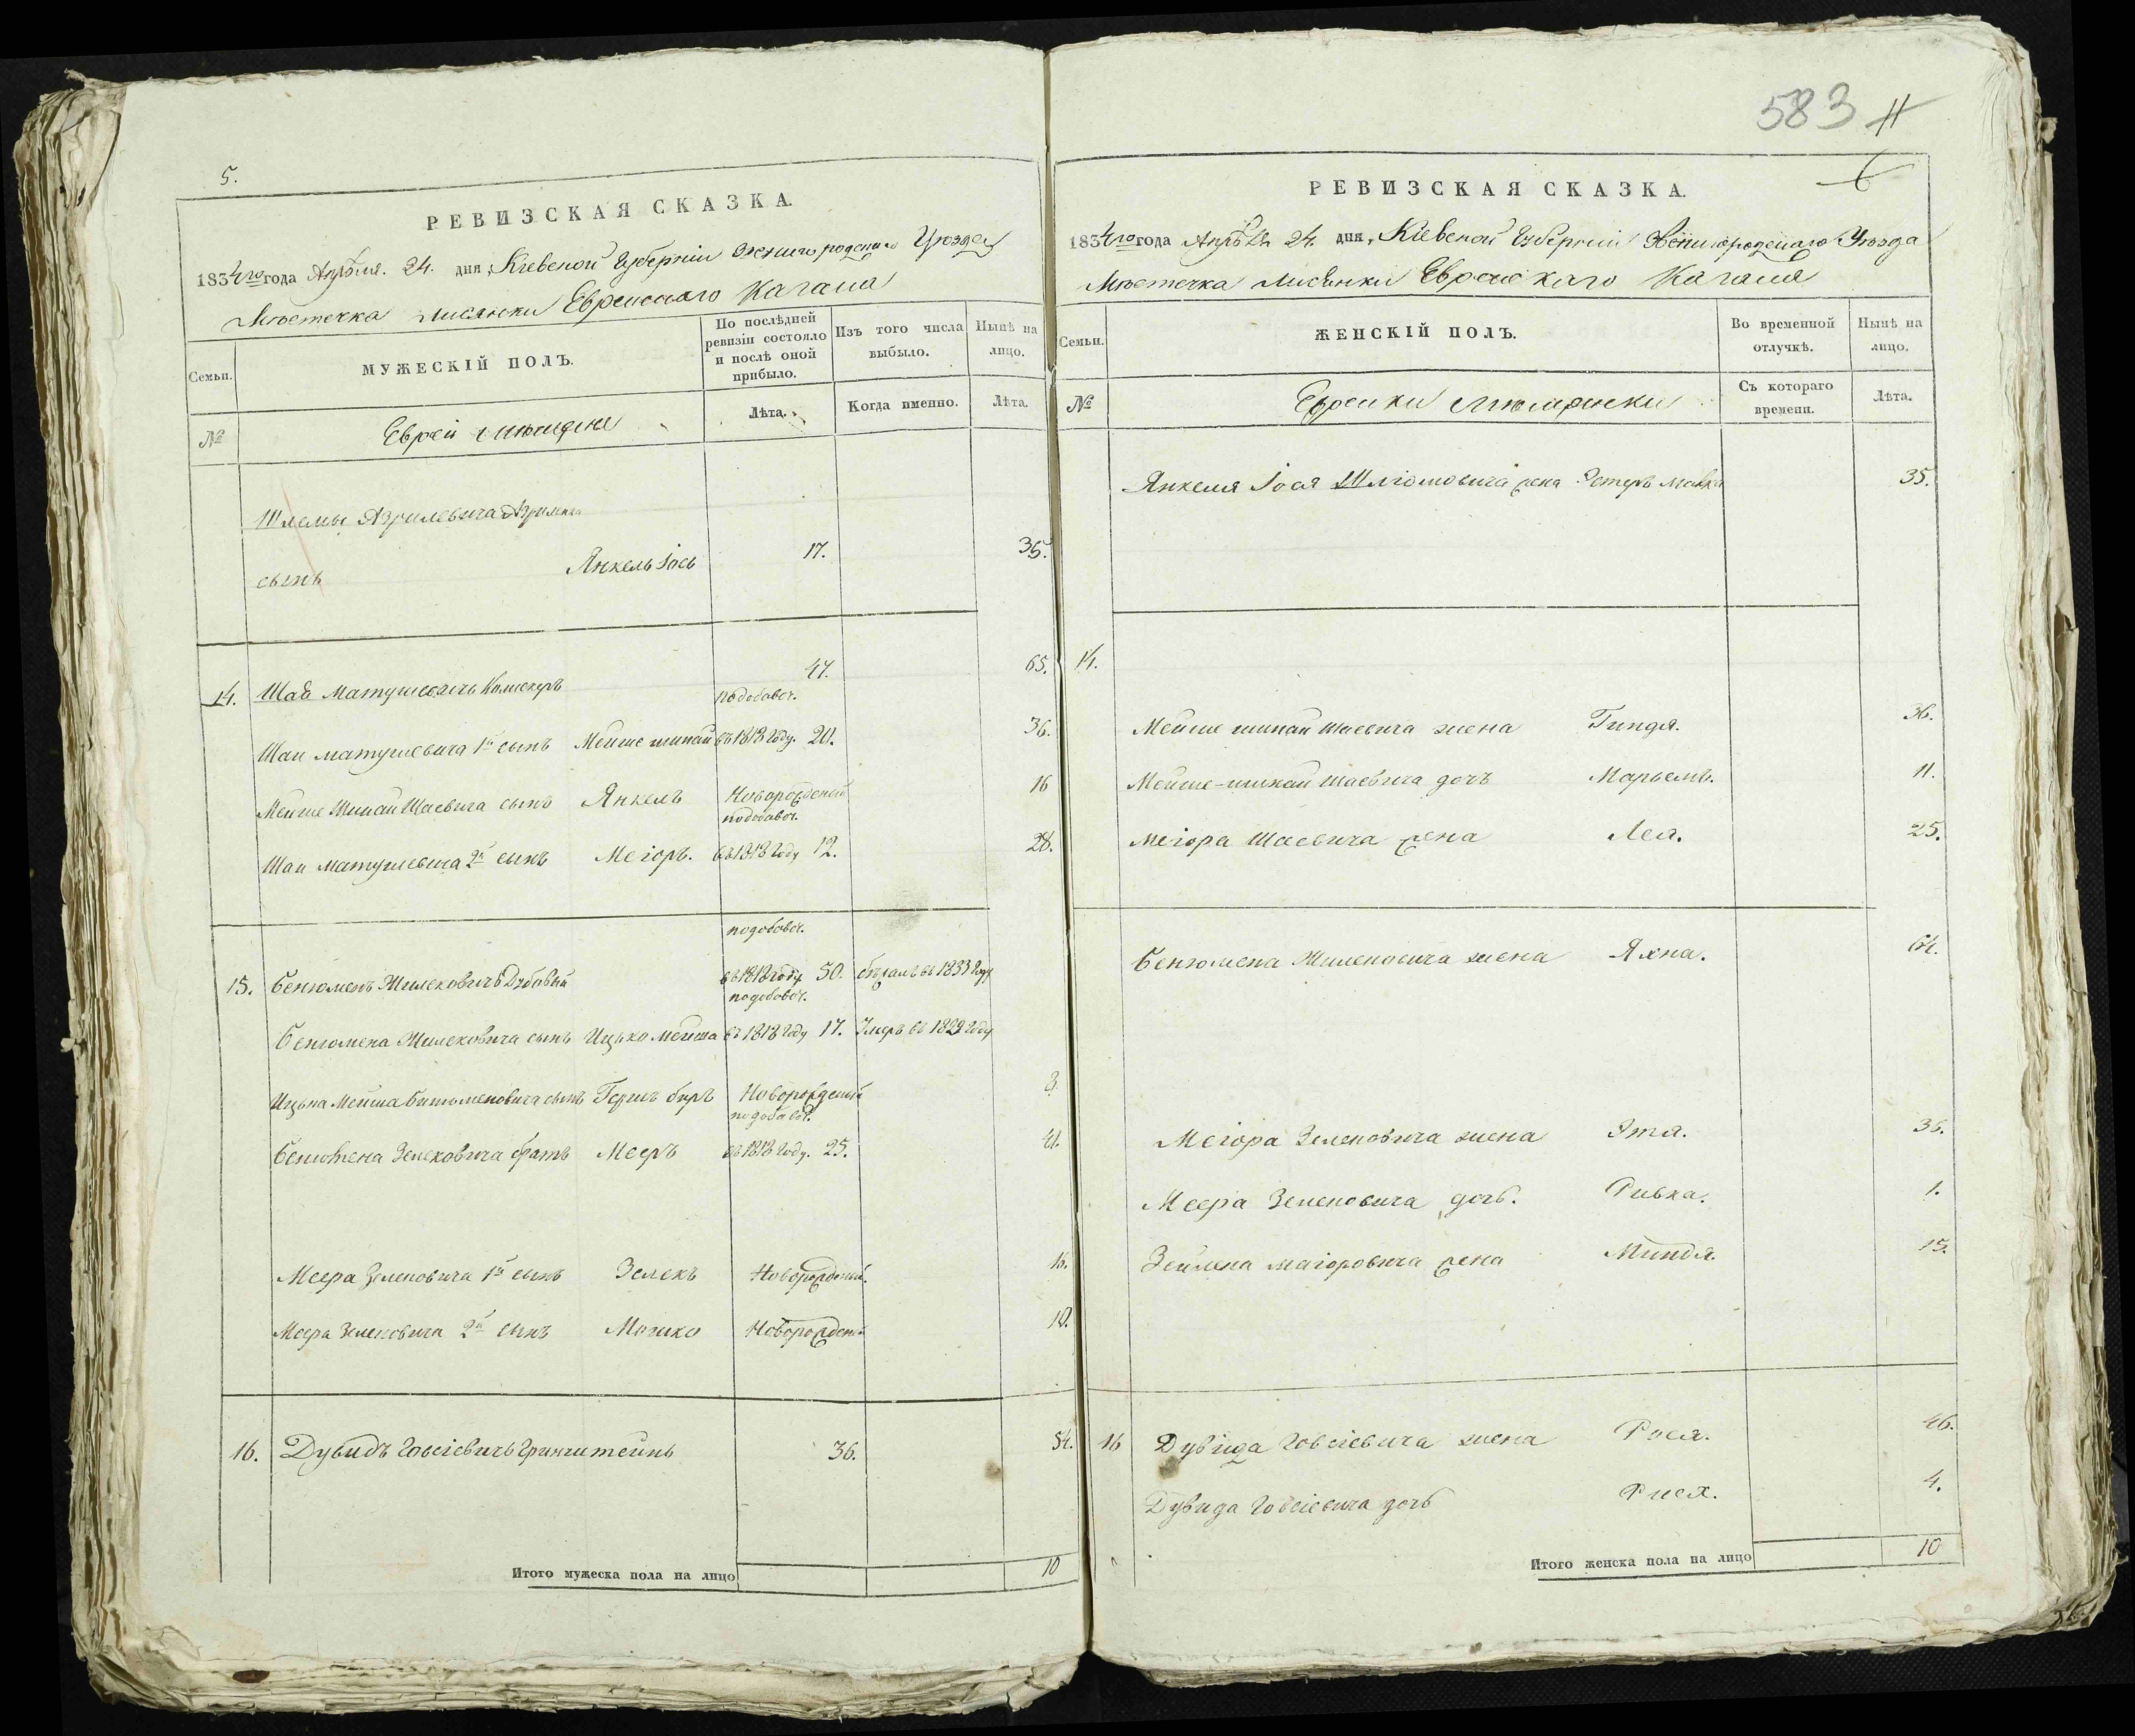 5.
РЕВИЗСКАЯ СКАЗКА.
1834го года Апрѣля. 24. дня, Кіевской Губерніи Звенигородскаго Уѣзда
Мѣстечка Лисянки Еврейскаго Кагала
Семьи. МУЖЕСКІЙ ПОЛЪ. По послѣдней ревизіи состояло и послѣ оной прибыло. Изъ того числа выбыло. Нынѣ на лицо.
№ Евреи мѣщане Лѣта. Когда именно. Лѣта.
Шлемы Азрилевича
сынъ Янкель Іось 17. 35.
14. Шая Матушевичъ 47. 65.
подобавоч.
Шаи Матушевича 1й сынъ Мейше въ 1818 году. 20. 36.
Мейше Шаевича сынъ Янкель Новорожденный 16
подобавоч.
Шаи Матушевича 2й сынъ Меіоръ. въ 1818 году 12. 28.
подобавоч.
15. Бенюменъ Дубовый въ 1818 году 50. бѣжалъ въ 1833 году
подобавоч.
Бенюмена сынъ Ицько Мейша въ 1818 году 17. Умеръ въ 1829 году
Ицька Мейша Бенюменовича сынъ Герш беръ Новорожденый 8.
подобавоч.
Бенюмена Зелековича братъ Мееръ въ 1818 году. 25. 41.
Меера Зелековича 1й сынъ Зелекъ Новорожденый. 16.
Меера Зелековича 2й сынъ Мошко Новорожденый 10.
16. Дувидъ Говсіевичъ Гринштейнъ 36. 54.
Итого мужеска пола на лицо 10
583
6
РЕВИЗСКАЯ СКАЗКА.
1834го года Апрѣля 24. дня, Кіевской Губерніи Звенигородскаго Уѣзда
Мѣстечка Лисянки Еврейскаго Кагала
Семьи. ЖЕНСКІЙ ПОЛЪ. Во временной отлучкѣ. Нынѣ на лицо.
№ Еврейки мѣщанки Съ котораго времени. Лѣта.
Янкеля Іося Шліомовича жена Эстеръ Малка 35.
14.
Мейше Шаевича жена Гиндя. 36.
Мейше Шаевича дочь Марьемъ. 11.
Меіора Шаевича жена Лея. 25.
Бенюмена жена Яхна. 64.
Меіора Зелековича жена Этя. 36.
Меера Зелековича дочь. Ривка. 1.
Зейлека Маіоровича жена Миндя. 15.
16 Дувида Говсіевича жена Рося. 46.
Дувида Говсіевича дочь Рися. 4.
Итого женска пола на лицо 10